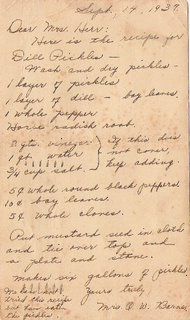 Sept. 14, 1937.
Dear Mrs. Herr:
Here is the recipe for
Dill Pickles -
Wash and dry pickles -
1 layer of pickles
1 layer of dill - bay leaves.
1 whole pepper
Horse radish root.
2 qts. vinegar } If this does
1 qt. water } not cover
3/4 cup salt. } keep adding.
5¢ whole round black peppers
10¢ bay leaves.
5¢ whole cloves.
Put mustard seed in cloth
and tie over top and
a plate and stone.
makes six gallons of pickles.
Yours truly,
Mrs. O. W.
tried this recipe
the pickles.